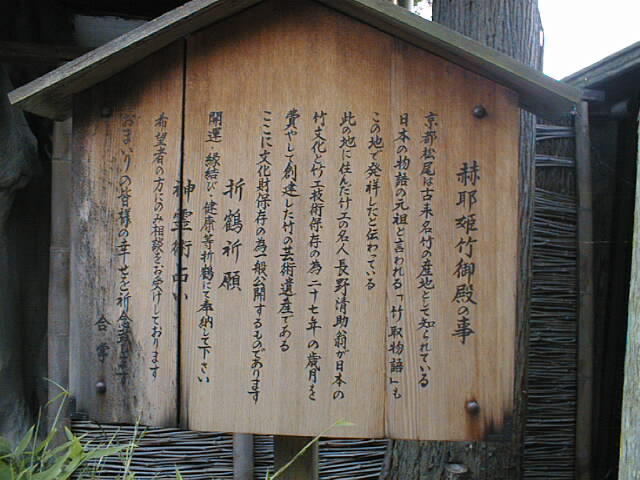 赫耶姫竹御殿の事
京都松尾は古来名竹の産地として知られている
日本の物語の元祖と言われる「竹取物語」も
この地で発祥したと伝わっている
此の地に住んだ竹工の名人長野清助翁が日本の
竹文化と竹工技術保存の為二十七年の歳月を
費やして創建した竹の芸術遺産である
ここに文化財保存の為一般公開するものであります
折鶴祈願
開運・縁結び・健康等折鶴にて奉納して下さい
神霊術占い
希望者の方にのみ相談をお受けしております
おまいりの皆様の幸せを祈念致します
合掌